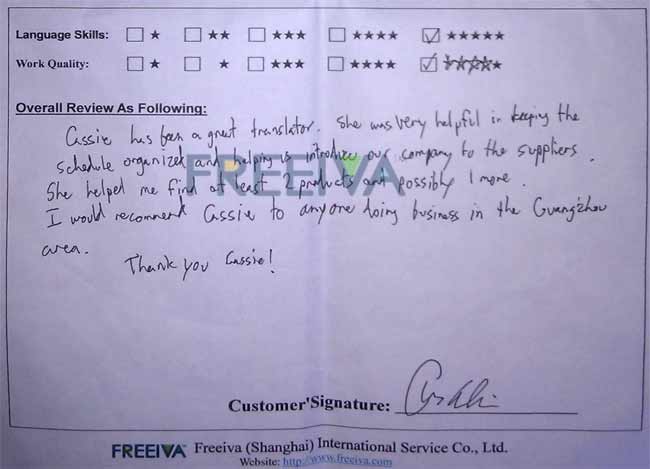 Language Skills: ☐ ★ ☐ ★★ ☐ ★★★ ☐ ★★★★ ☑ ★★★★★
Work Quality: ☐ ★ ☐ ★ ☐ ★★★ ☐ ★★★★ ☑ ★★★★★
Overall Review As Following:
Cassie has been a great translator. She was very helpful in keeping the
schedule organized and helping us introduce our company to the suppliers.
FREEIVA
She helped me find at least 2 products and possibly 1 more.
I would recommend Cassie to anyone doing business in the Guangzhou
area.
Thank you Cassie!
Customer'Signature:
FREEIVA™ Freeiva (Shanghai) International Service Co., Ltd.
Website: http://www.freeiva.com